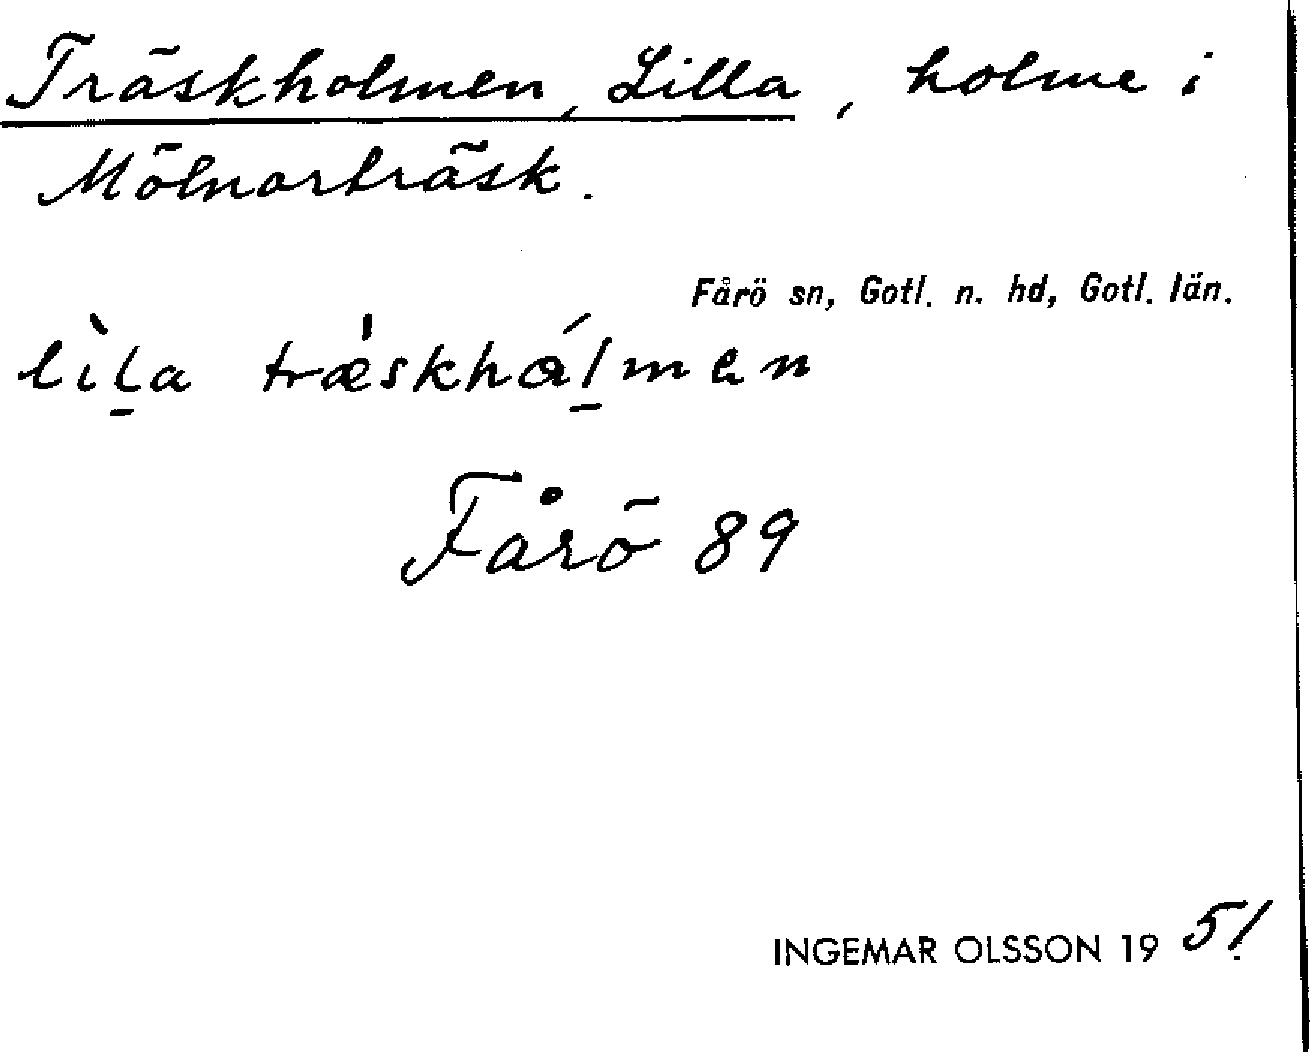 Träskholmen, Lilla, holme i
Mölnorträsk.
Fårö sn, Gotl. n. hd, Gotl. län.
Fårö 89
INGEMAR OLSSON 19 51.